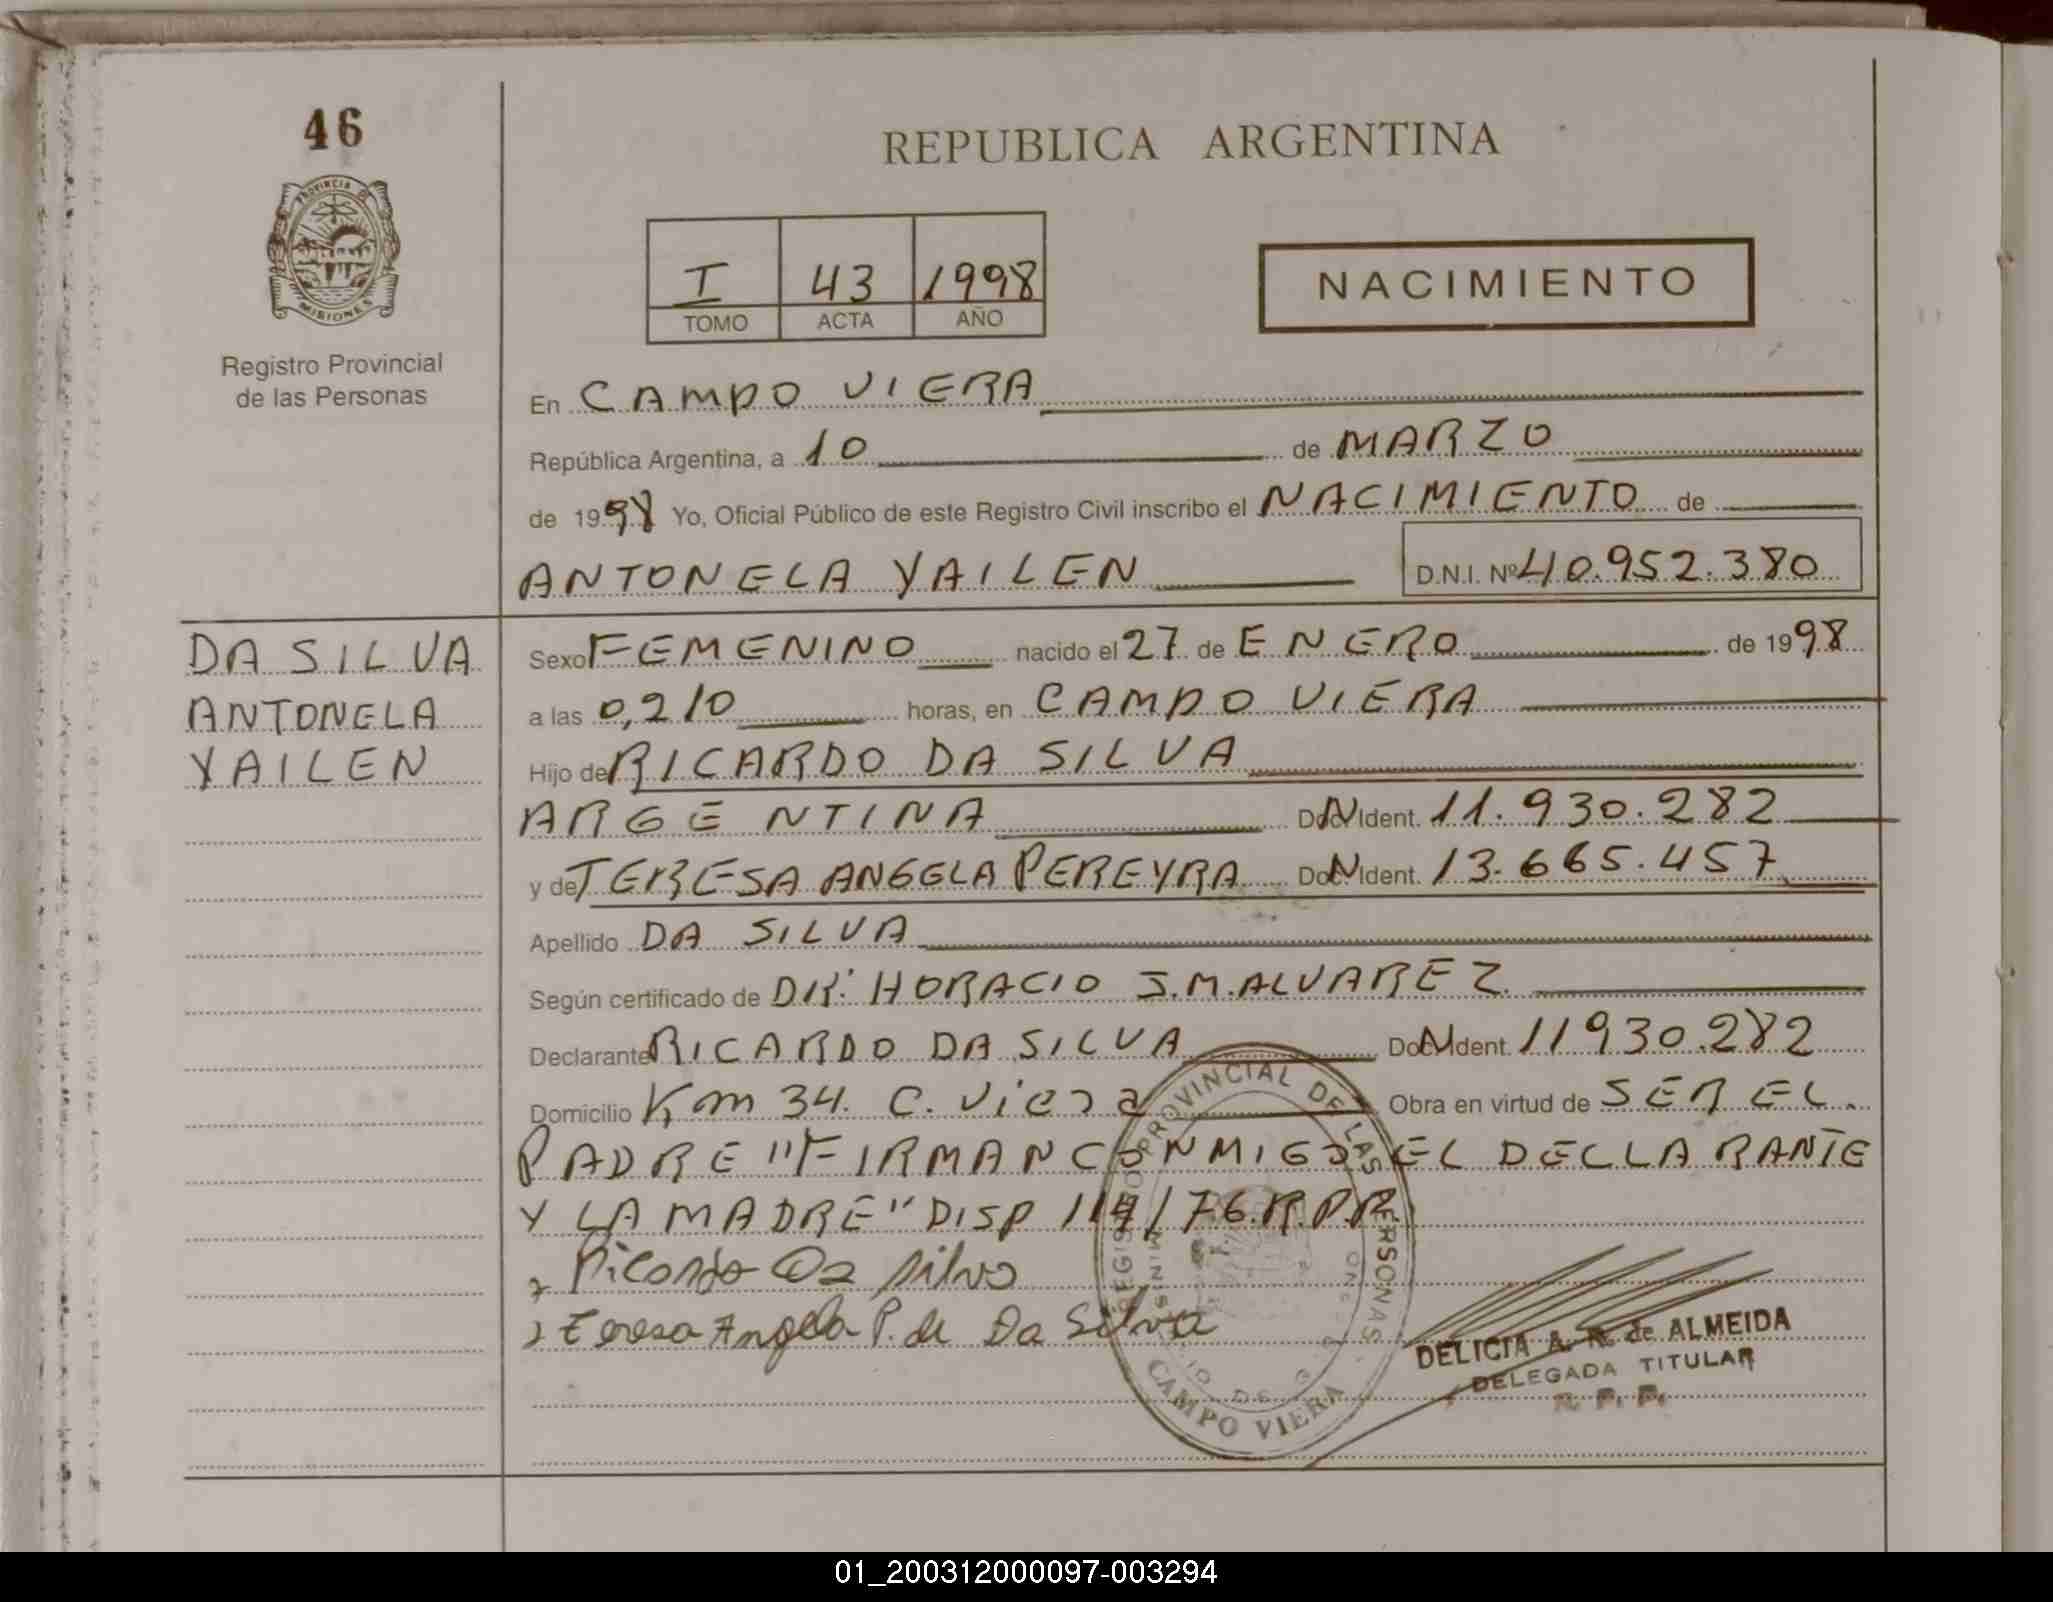 46
PROVINCIA DE MISIONES
Registro Provincial
de las Personas
REPUBLICA ARGENTINA
I 43 1998
TOMO ACTA AÑO
NACIMIENTO
En CAMPO VIERA
República Argentina, a 10 de MARZO
de 1998 Yo, Oficial Público de este Registro Civil inscribo el NACIMIENTO de
ANTONELA YAILEN D.N.I. Nº 40.952.380
DA SILVA
ANTONELA
YAILEN
Sexo FEMENINO nacido el 27 de ENERO de 1998
a las 0,210 horas, en CAMPO VIERA
Hijo de RICARDO DA SILVA
ARGENTINA Doc. N Ident. 11.930.282
y de TERESA ANGELA PEREYRA Doc. N Ident. 13.665.457
Apellido DA SILVA
Según certificado de DR: HORACIO S.M. ALVAREZ
Declarante RICARDO DA SILVA Doc. N Ident. 11930.282
Domicilio Km 34. C. Viera Obra en virtud de SER EL.
PADRE "FIRMAN CONMIGO EL DECLLARANTE
Y LA MADRE" DISP 114/76.R.P.P.
Ricardo Da silva
Teresa Angela P. de Da Silva
REGISTRO PROVINCIAL DE LAS PERSONAS
CAMPO VIERA
DELICIA A. R. de ALMEIDA
DELEGADA TITULAR
R. P. P.
01_200312000097-003294